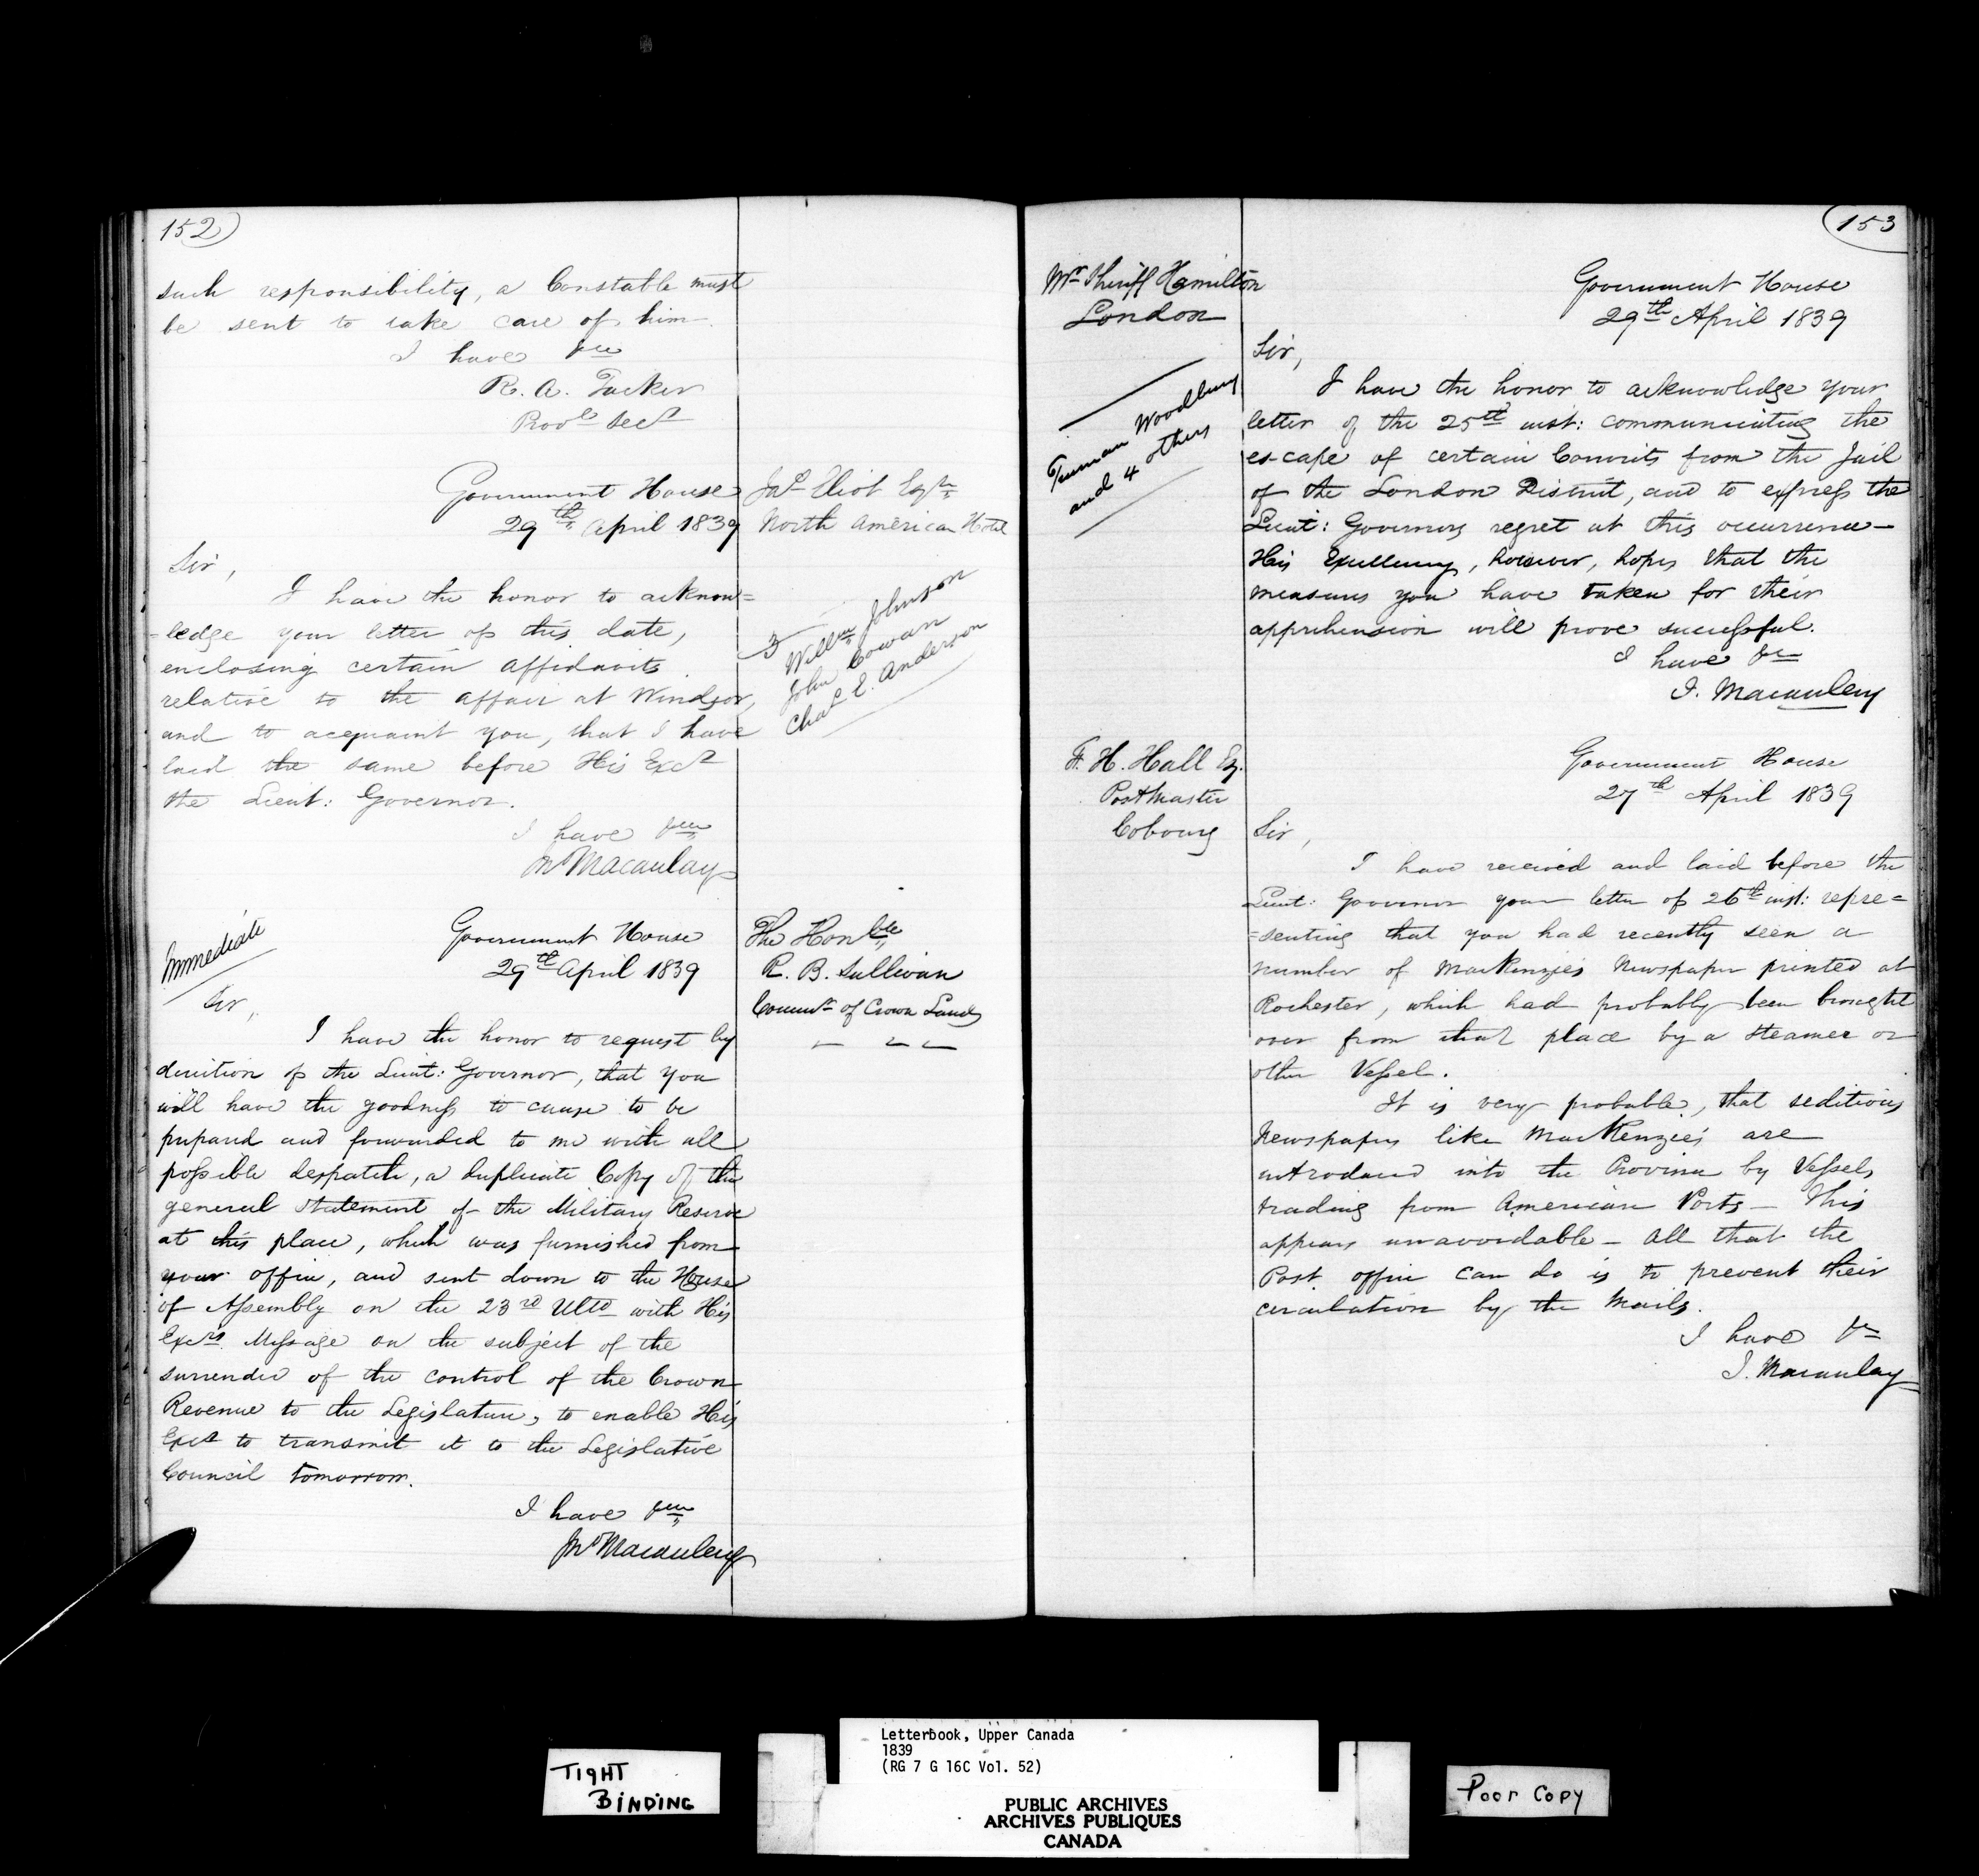 152
such responsibility, a Constable must
be sent to take care of him
I have &c
R. A. Tucker
Provl Secy
Government House
29th April 1839
Jas Eliot Esqre
North American Hotel
Sir,
I have the honor to acknow=
=ledge your letter of this date,
enclosing certain affidavits
relative to the affair at Windsor,
and to acquaint you, that I have
laid the same before His Excy
the Lieut: Governor.
I have &c
Jno Macaulay
3
Willm Johnson
John Cowan
Chas E. Anderson
Immediate
Government House
29th April 1839
The Honble
R. B. Sullivan
Commr of Crown Lands
Sir,
I have the honor to request by
direction of the Lieut: Governor, that you
will have the goodness to cause to be
prepared and forwarded to me with all
possible despatch, a duplicate Copy of the
general Statement of the Military Reserve
at this place, which was furnished from
your office, and sent down to the House
of Assembly on the 23rd Ulto with His
Excys Message on the subject of the
surrender of the control of the Crown
Revenue to the Legislature, to enable His
Excy to transmit it to the Legislative
Council tomorrow.
I have &c
Jno Macaulay
153
Mr Sheriff Hamilton
London
Truman Woodbury
and 4 others
Government House
29th April 1839
Sir,
I have the honor to acknowledge your
letter of the 25th inst: communicating the
es-cape of certain Convicts from the Jail
of the London District, and to express the
Lieut: Governors regret at this occurrence—
His Excellency, however, hopes that the
measures you have taken for their
apprehension will prove successful.
I have &c
J. Macaulay
F. H. Hall Esq.
PostMaster
Cobourg
Government House
27th April 1839
Sir,
I have received and laid before the
Lieut: Governor your letter of 26th inst: repre=
=senting that you had recently seen a
number of MacKenzie's Newspaper printed at
Rochester, which had probably been brought
over from that place by a steamer or
other Vessel.
It is very probable, that seditious
Newspapers like MacKenzie's are
introduced into the Province by Vessels
trading from American Ports — This
appears unavoidable — All that the
Post office can do is to prevent their
circulation by the Mails.
I have &c
J. Macaulay
TIGHT
BINDING
Letterbook, Upper Canada
1839
(RG 7 G 16C Vol. 52)
PUBLIC ARCHIVES
ARCHIVES PUBLIQUES
CANADA
Poor Copy